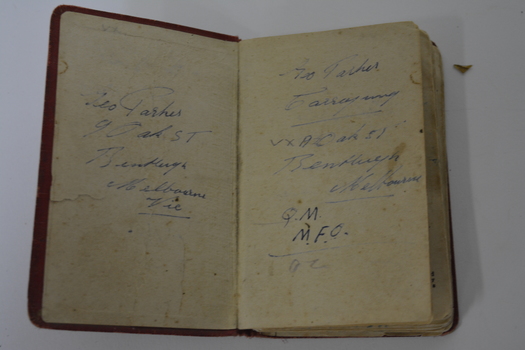 Geo Parker
9 Oak ST
Bentleigh
Melbourne
Vic.
Geo Parker
Oak ST
Bentleigh
Melbourne
Q.M.
M.F.O.